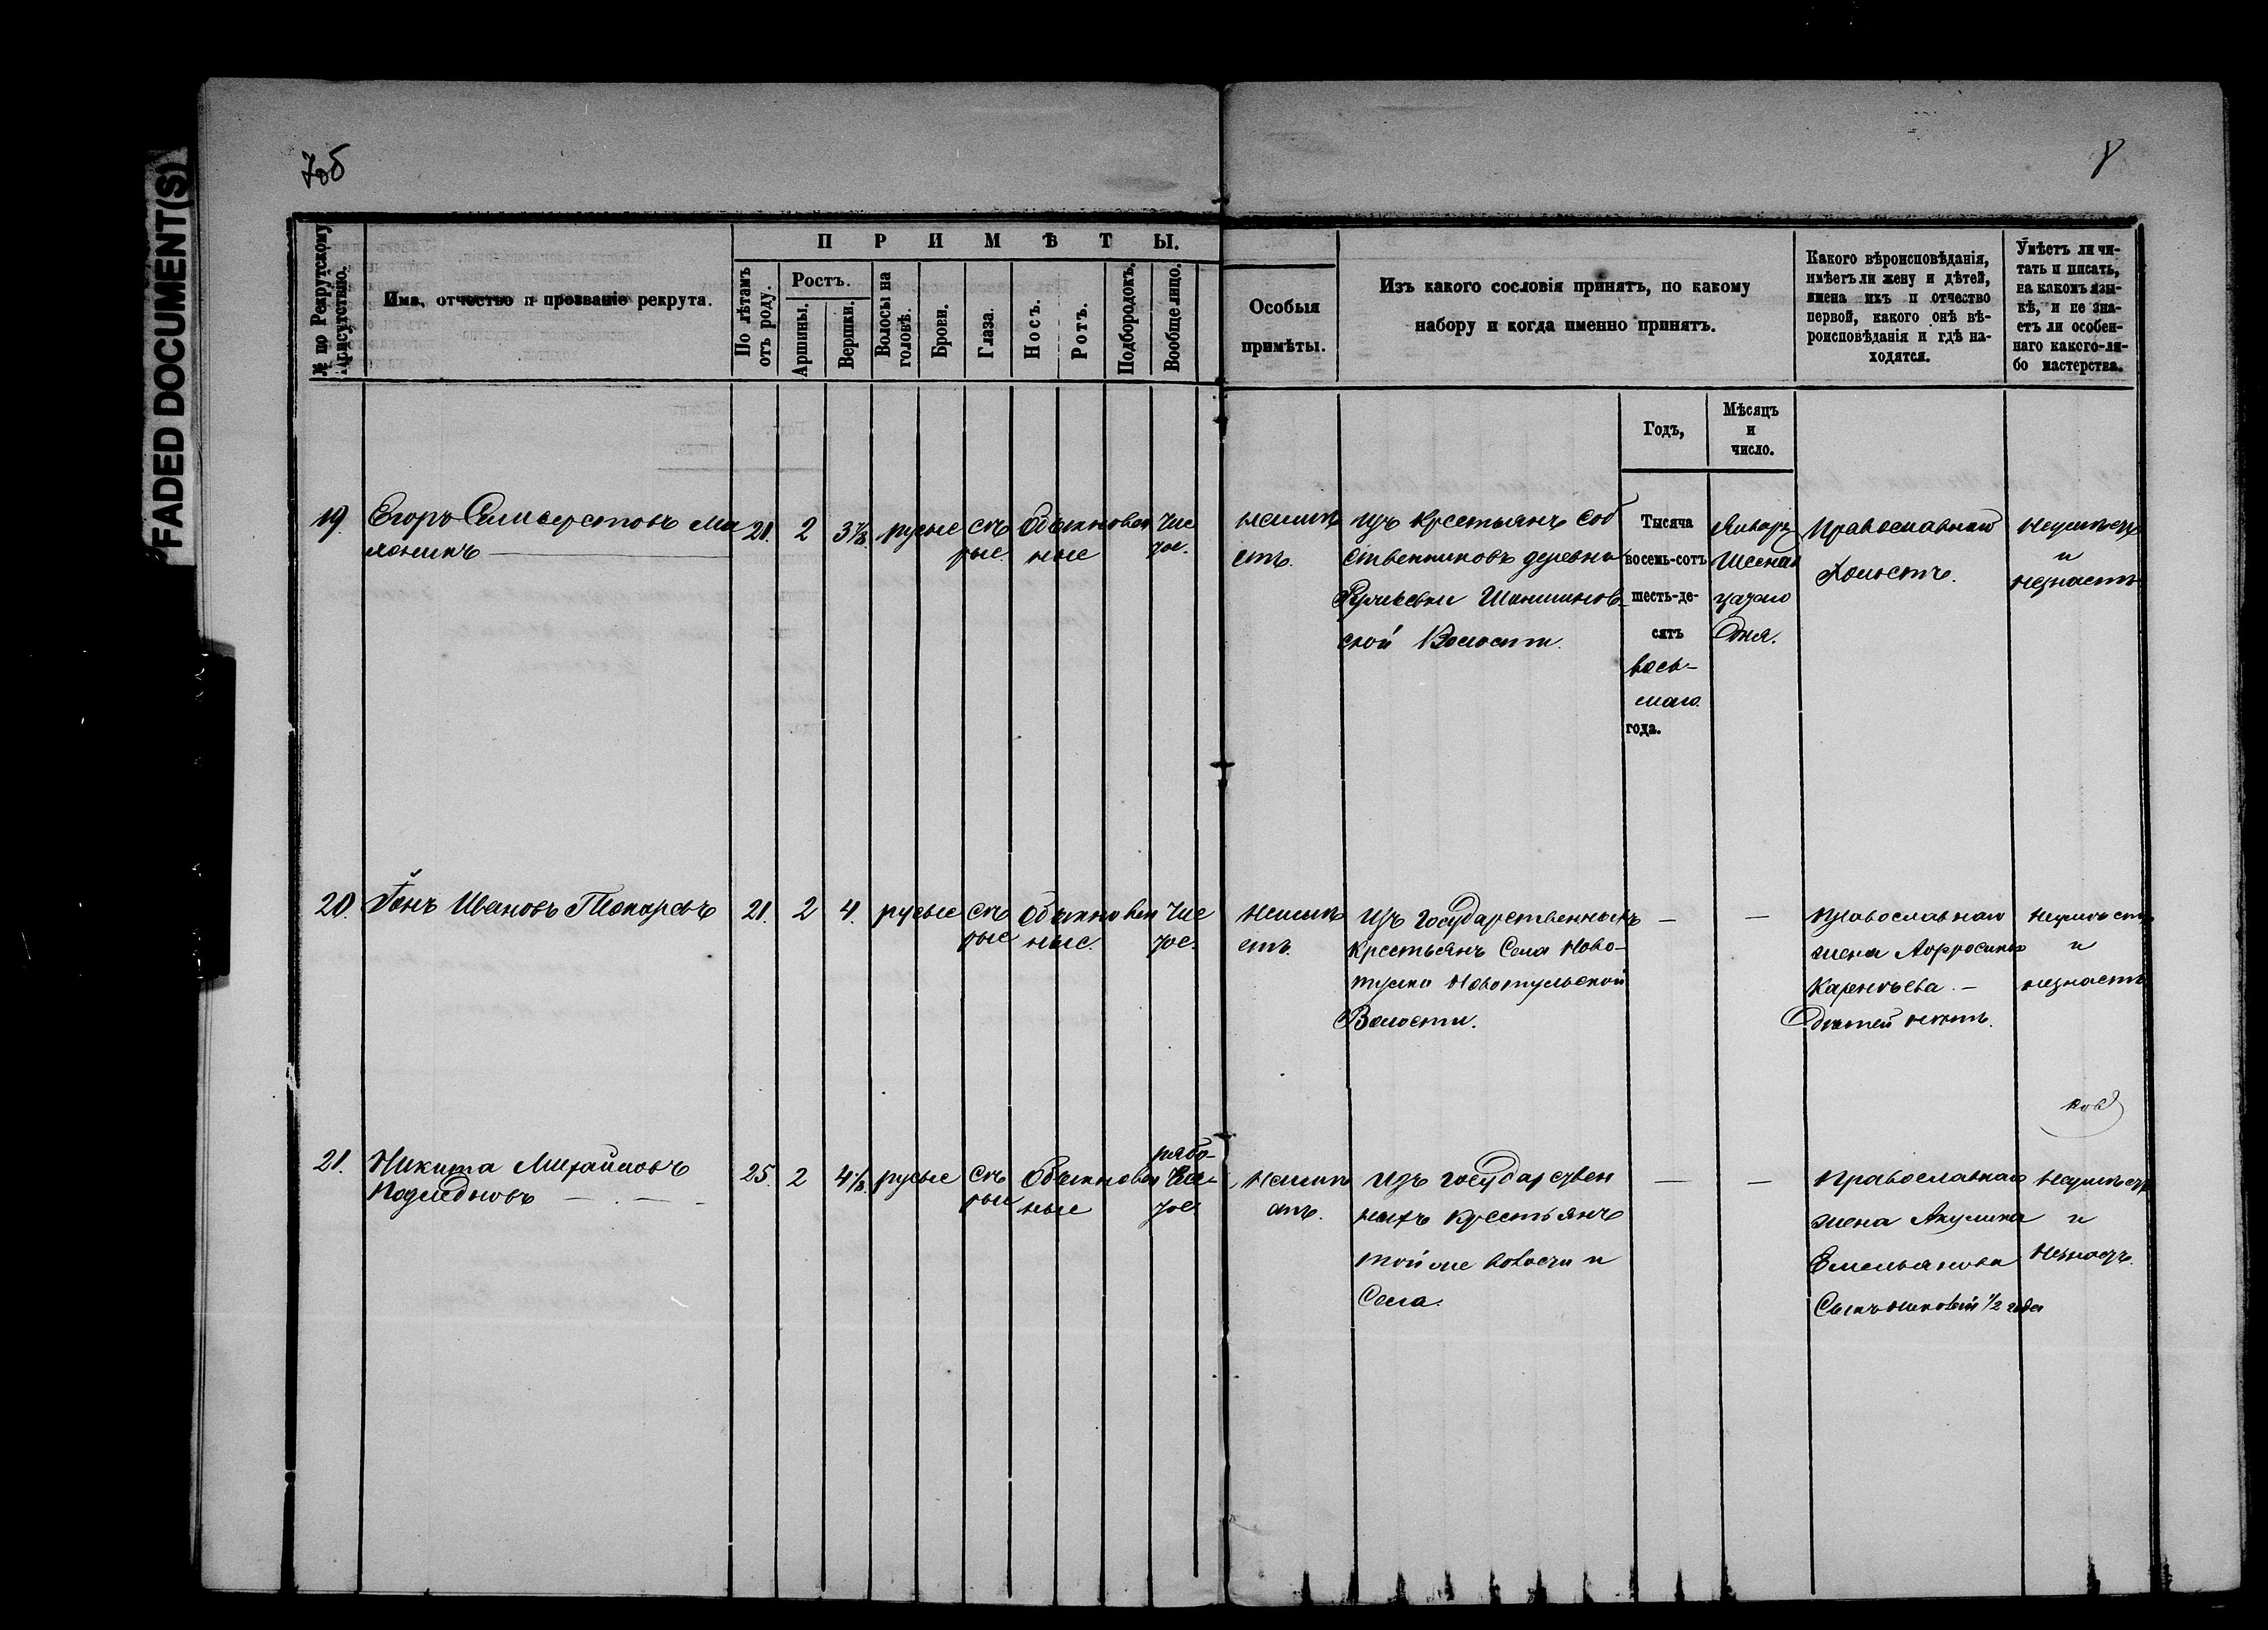 FADED DOCUMENT(S)
7об
8
№ по Рекрутскому
Присутствію.
Имя, отчество и прозваніе рекрута.
ПРИМѢТЫ.
По лѣтамъ
отъ роду.
Ростъ.
Аршины.
Вершки.
Волосы на
головѣ.
Брови.
Глаза.
Носъ.
Ротъ.
Подбородокъ.
Вообще лицо.
Особыя
примѣты.
Изъ какого сословія принятъ, по какому
набору и когда именно принятъ.
Какого вѣроисповѣданія,
имѣетъ ли жену и дѣтей,
имена ихъ и отчество
первой, какого онѣ вѣ-
роисповѣданія и гдѣ на-
ходятся.
Умѣетъ ли чи-
тать и писать,
на какомъ язы-
кѣ, и не зна-
етъ ли особен-
наго какого-ли-
бо мастерства.
Годъ,
Мѣсяцъ
и
число.
19. Егоръ Селиверстовъ Ма
21. 2 3⅞ русые сѣ
рые. Обыкновен
ные Чис
тое.
неимѣ
етъ.
Изъ крестьянъ соб
ственниковъ деревни
ской Волости.
Тысяча
восемь-сотъ
шесть-де-
сятъ
вось-
маго
года.
Январь
Шеснад
цатаго
дня.
Православнаго
Холостъ.
Неумѣетъ
и
незнаетъ
20. Іонъ Ивановъ Токаревъ
21. 2 4. русые сѣ
рые Обыкновен
ные. Чис
тое.
Неимѣ
етъ.
Изъ Государственныхъ
Крестьянъ Села Ново-
тулки Новотульской
Волости.
— —
Православнаго
жена Афросинья
дѣтей нѣтъ.
Неумѣетъ
и
незнаетъ
21. Никита Михайловъ
25. 2 4⅛ русые Сѣ
рые Обыкновен
ные рябо-
тое.
Неимѣ
етъ.
Изъ государствен
ныхъ Крестьянъ
той же волости и
Села.
— —
Православнаго
жена Акулина
Емельянова
Сынъ ½ года
Неумѣетъ
и
Незнаетъ.